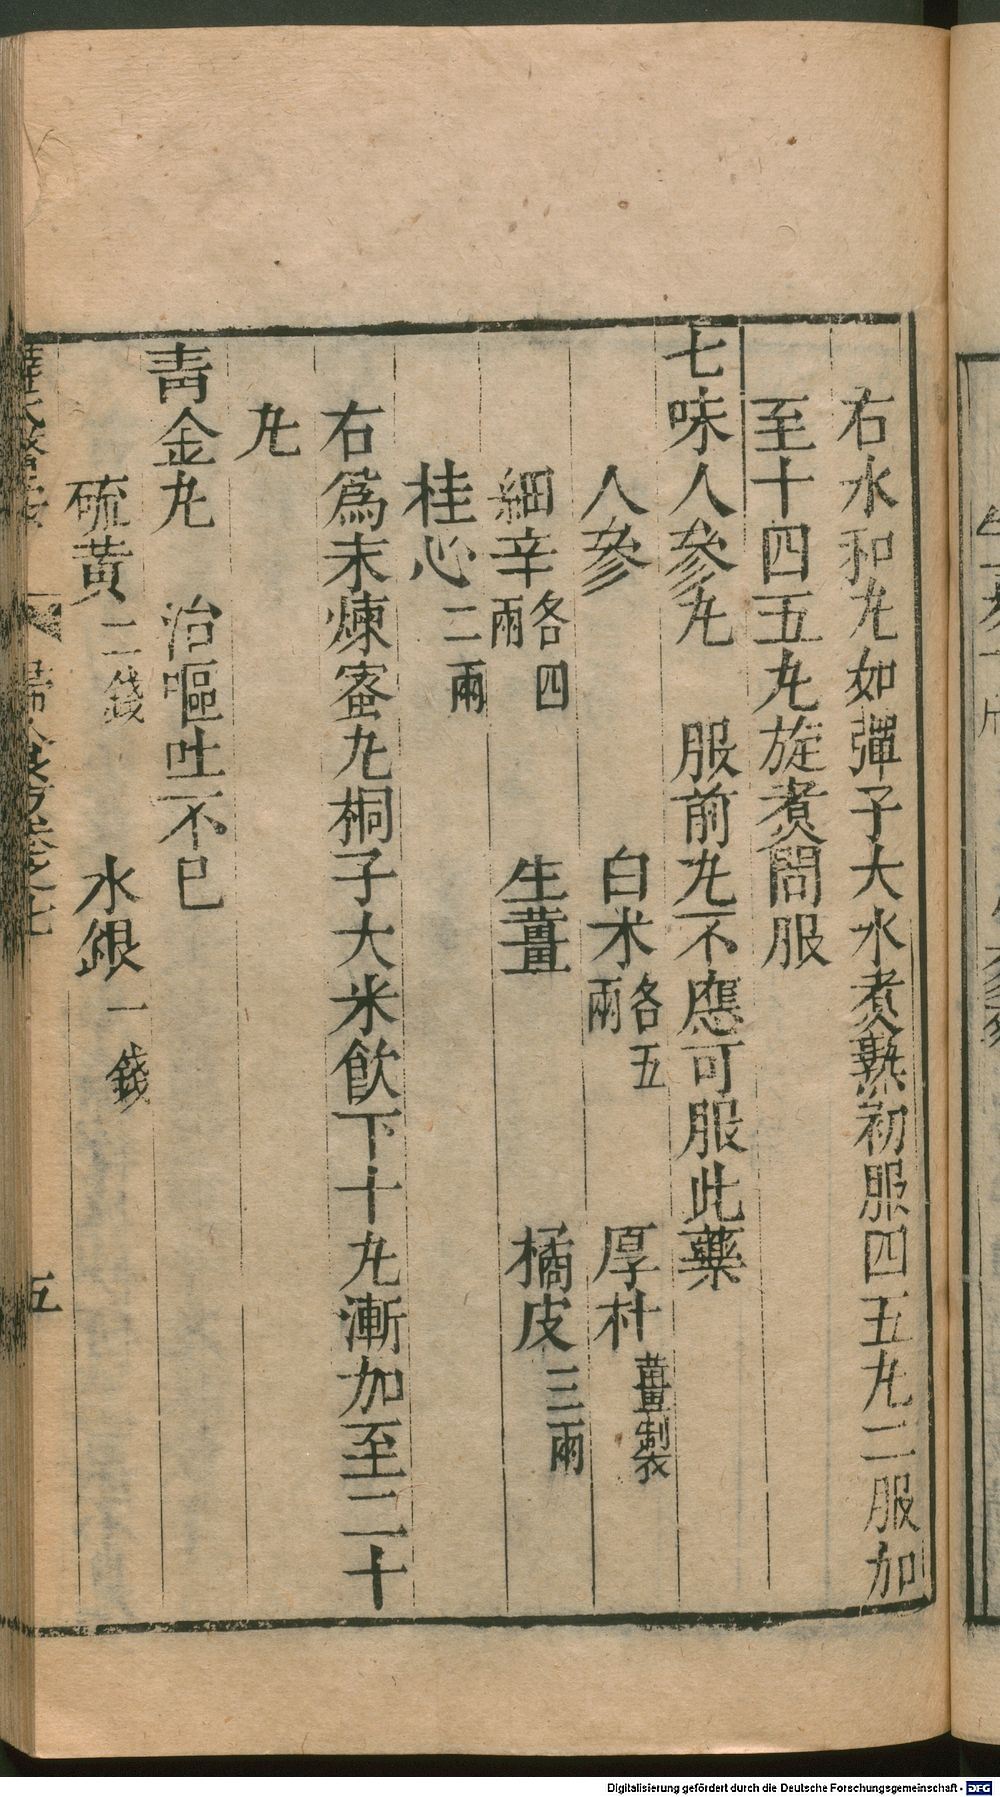 右水和丸如彈子大水煮熟初服四五丸二服加
至十四五丸旋煮間服
七味人參丸　服前丸不應可服此藥
人參　白米各五兩　厚朴薑製炙
細辛各四兩　生薑　橘皮三兩
桂心二兩
右爲末煉蜜丸桐子大米飲下十丸漸加至二十
丸
青金丸　治嘔吐不已
硫黃二錢　水銀一錢
薛氏醫按　婦人良方卷之七　五
Digitalisierung gefördert durch die Deutsche Forschungsgemeinschaft - DFG